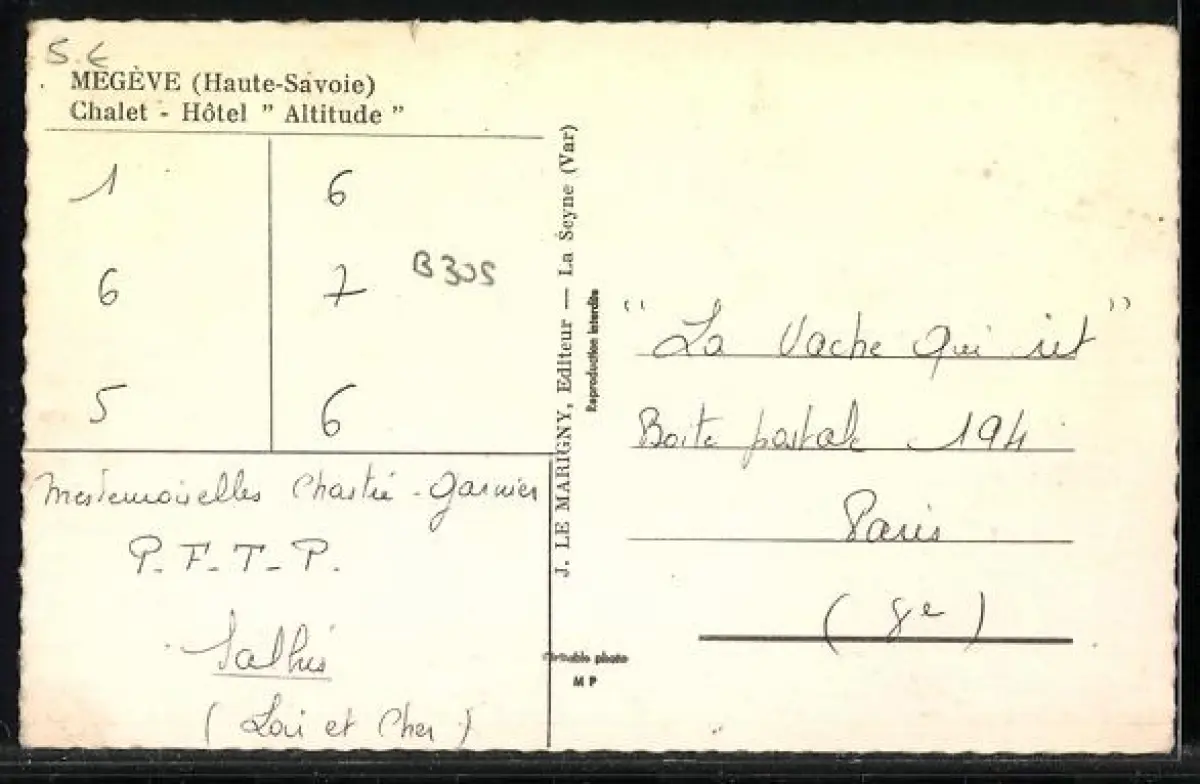 5 €
MEGÈVE (Haute-Savoie)
Chalet - Hôtel " Altitude "
1 6
6 7
B305
5 6
Mesdemoiselles Chastré - Garnier
P. F. T. P.
(Loir et Cher)
J. LE MARIGNY, Editeur — La Seyne (Var)
Reproduction interdite
Véritable photo
M P
"La Vache qui rit"
Boite postale 194
Paris
(8e)